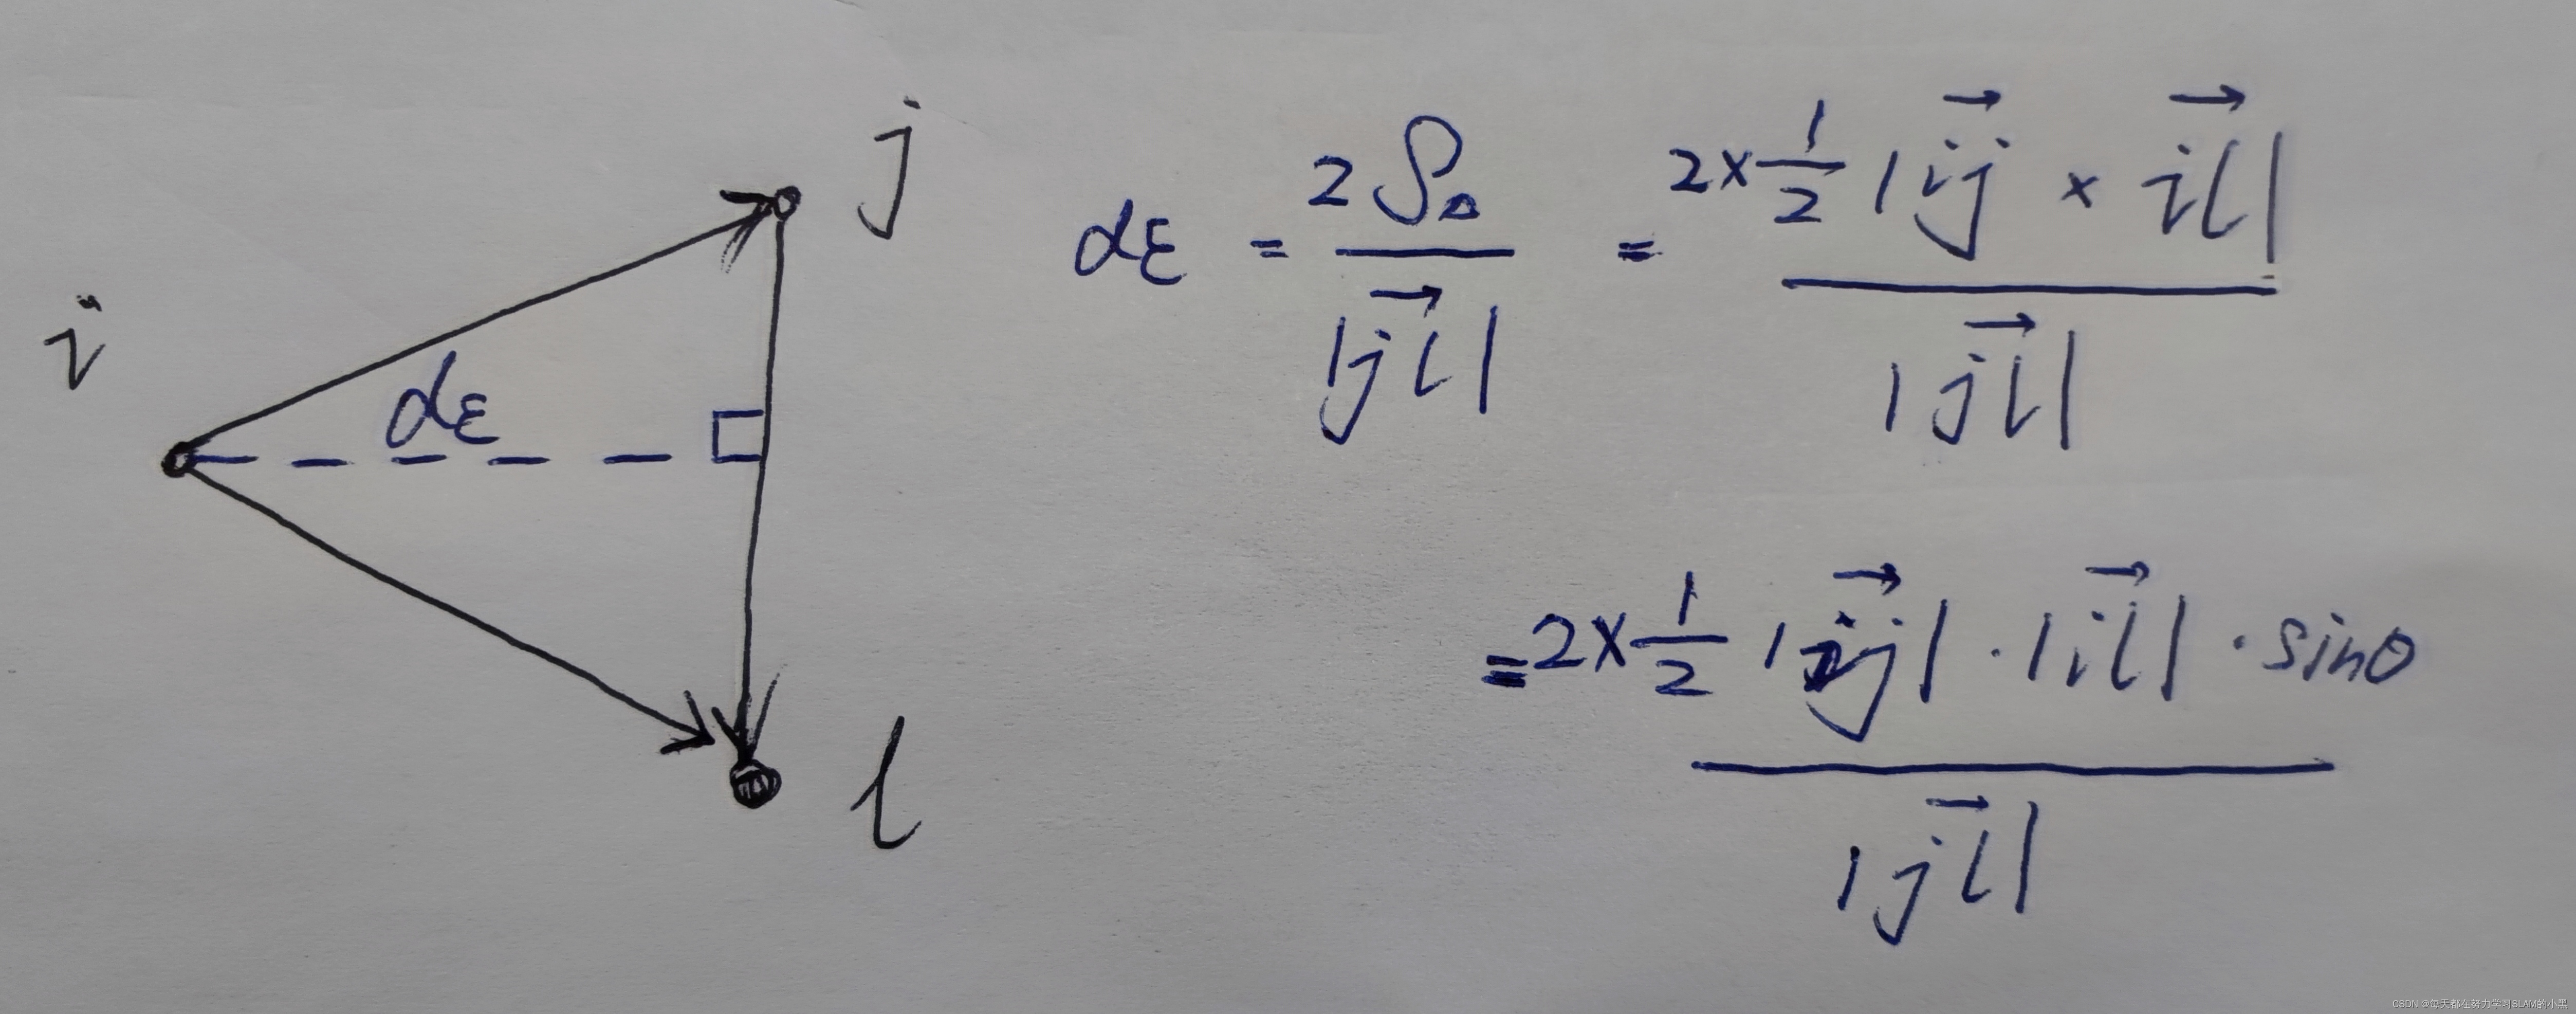 i
j
l
dε
dε = 2S△ / |jl→| = 2×1/2 |ij→ × il→| / |jl→|
= 2×1/2 |ij→| · |il→| · sinθ / |jl→|
CSDN @每天都在努力学习SLAM的小黑